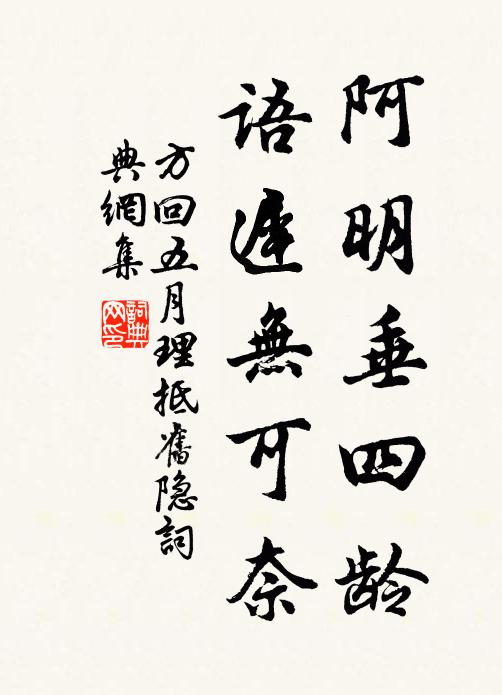 阿明垂四龄
語遲無可奈
方回五月理抵舊隐詞
典網集
詞典
网印